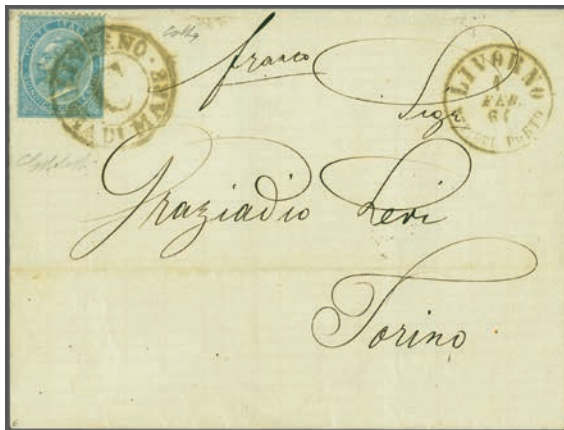 POSTE ITALIANE
LIVORNO
VIA DI MARE
C
franco
LIVORNO
1
FEB.
Sigr
Graziadio Levi
Torino